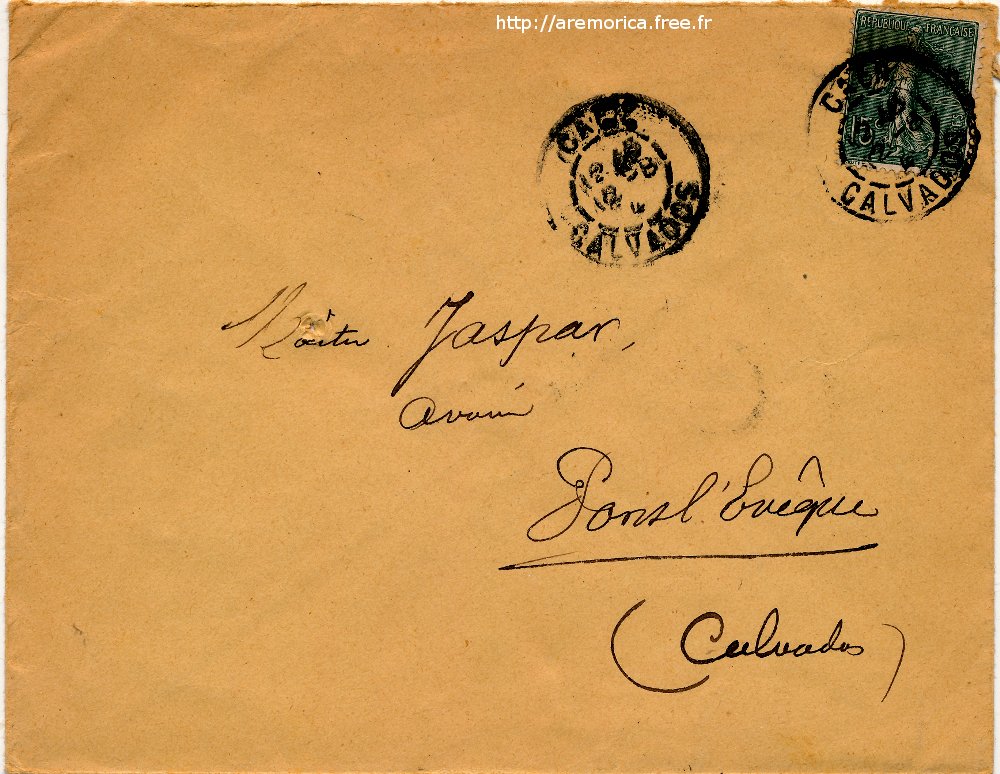 http://aremorica.free.fr
REPUBLIQUE FRANÇAISE
15
CAEN
CALVADOS
CALVADOS
Maître Jaspar,
avoué
Pont l'Evêque
(Calvados)